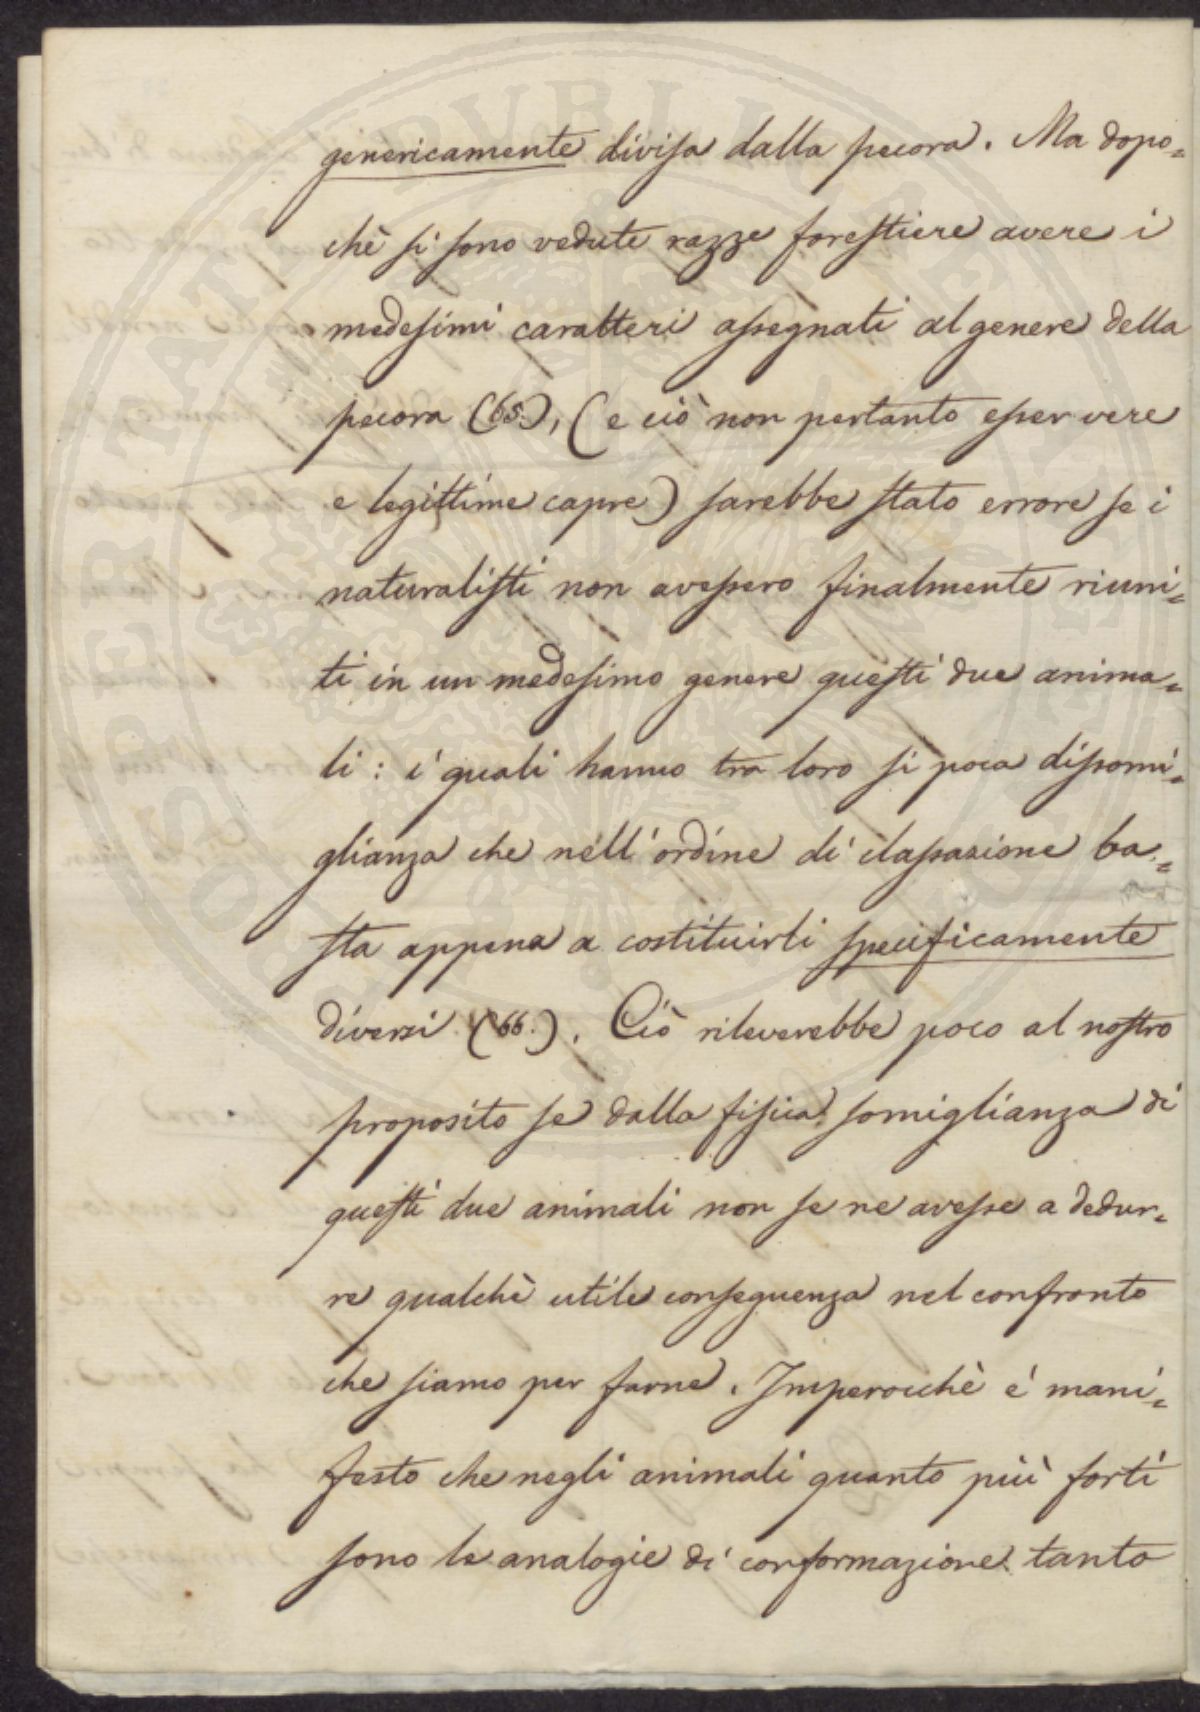 genericamente divisa dalla pecora. Ma dopo=
chè si sono vedute razze forestiere avere i
medesimi caratteri assegnati al genere della
pecora (65.), (e ciò non pertanto esser vere
e legittime capre) sarebbe stato errore se i
naturalisti non avessero finalmente riuni=
ti in un medesimo genere questi due anima=
li: i quali hanno tra loro si poca dissomi=
glianza che nell'ordine di classazione ba=
sta appena a costituirli specificamente
diversi (66.). Ciò rileverebbe poco al nostro
proposito se dalla fisica somiglianza di
questi due animali non se ne avesse a dedur=
re qualchè utile conseguenza nel confronto
che siamo per farne. Imperocchè è mani=
festo che negli animali quanto più forti
sono le analogie di conformazione tanto